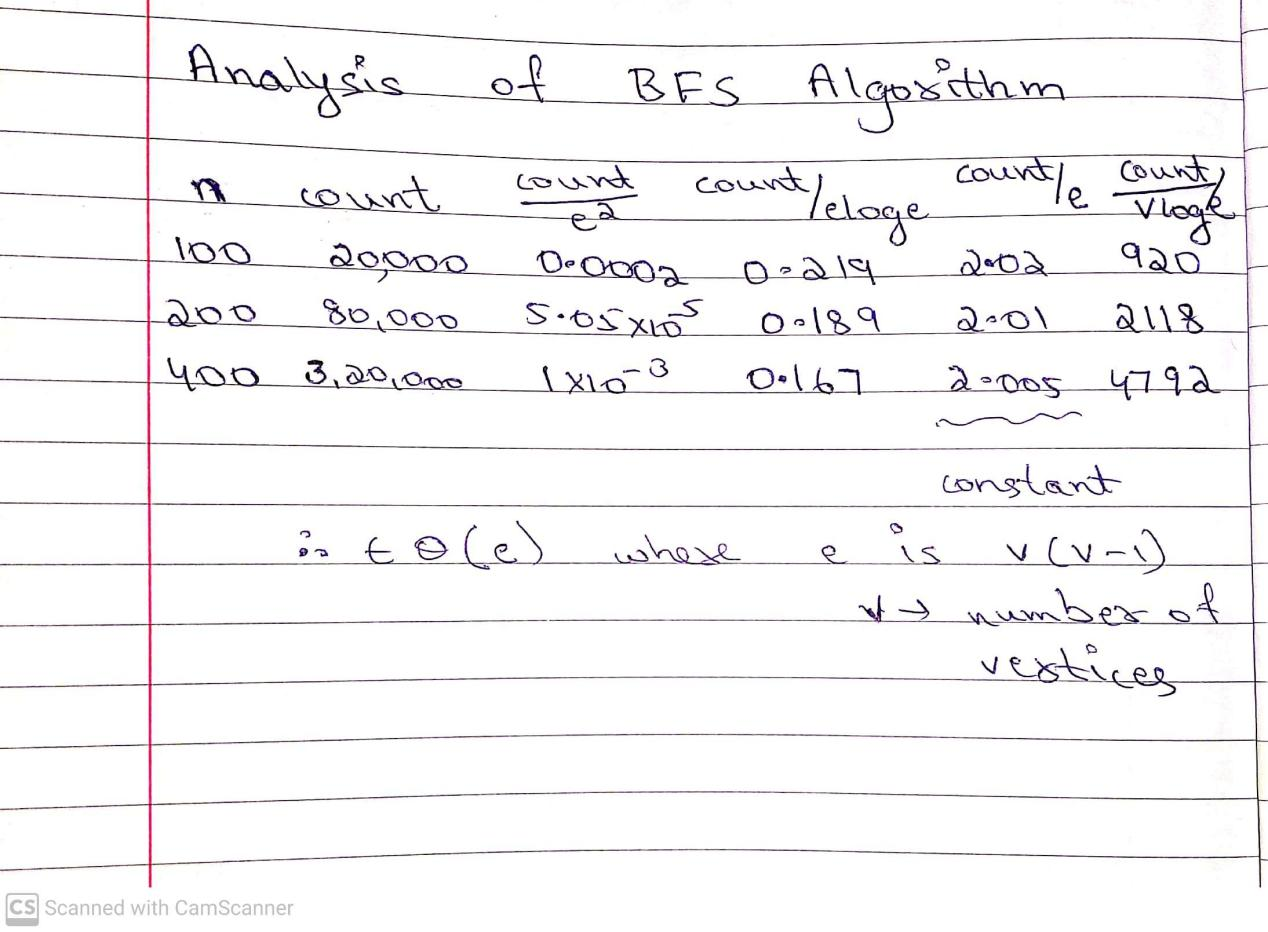 Analysis of BFS Algorithm
n count count/e² count/eloge count/e count/vloge
100 20,000 0.0002 0.219 2.02 920
200 80,000 5.05×10⁻⁵ 0.189 2.01 2118
400 3,20,000 1×10⁻³ 0.167 2.005 4792
constant
∴ t θ(e) where e is v(v-1)
v → number of
vertices
CS Scanned with CamScanner